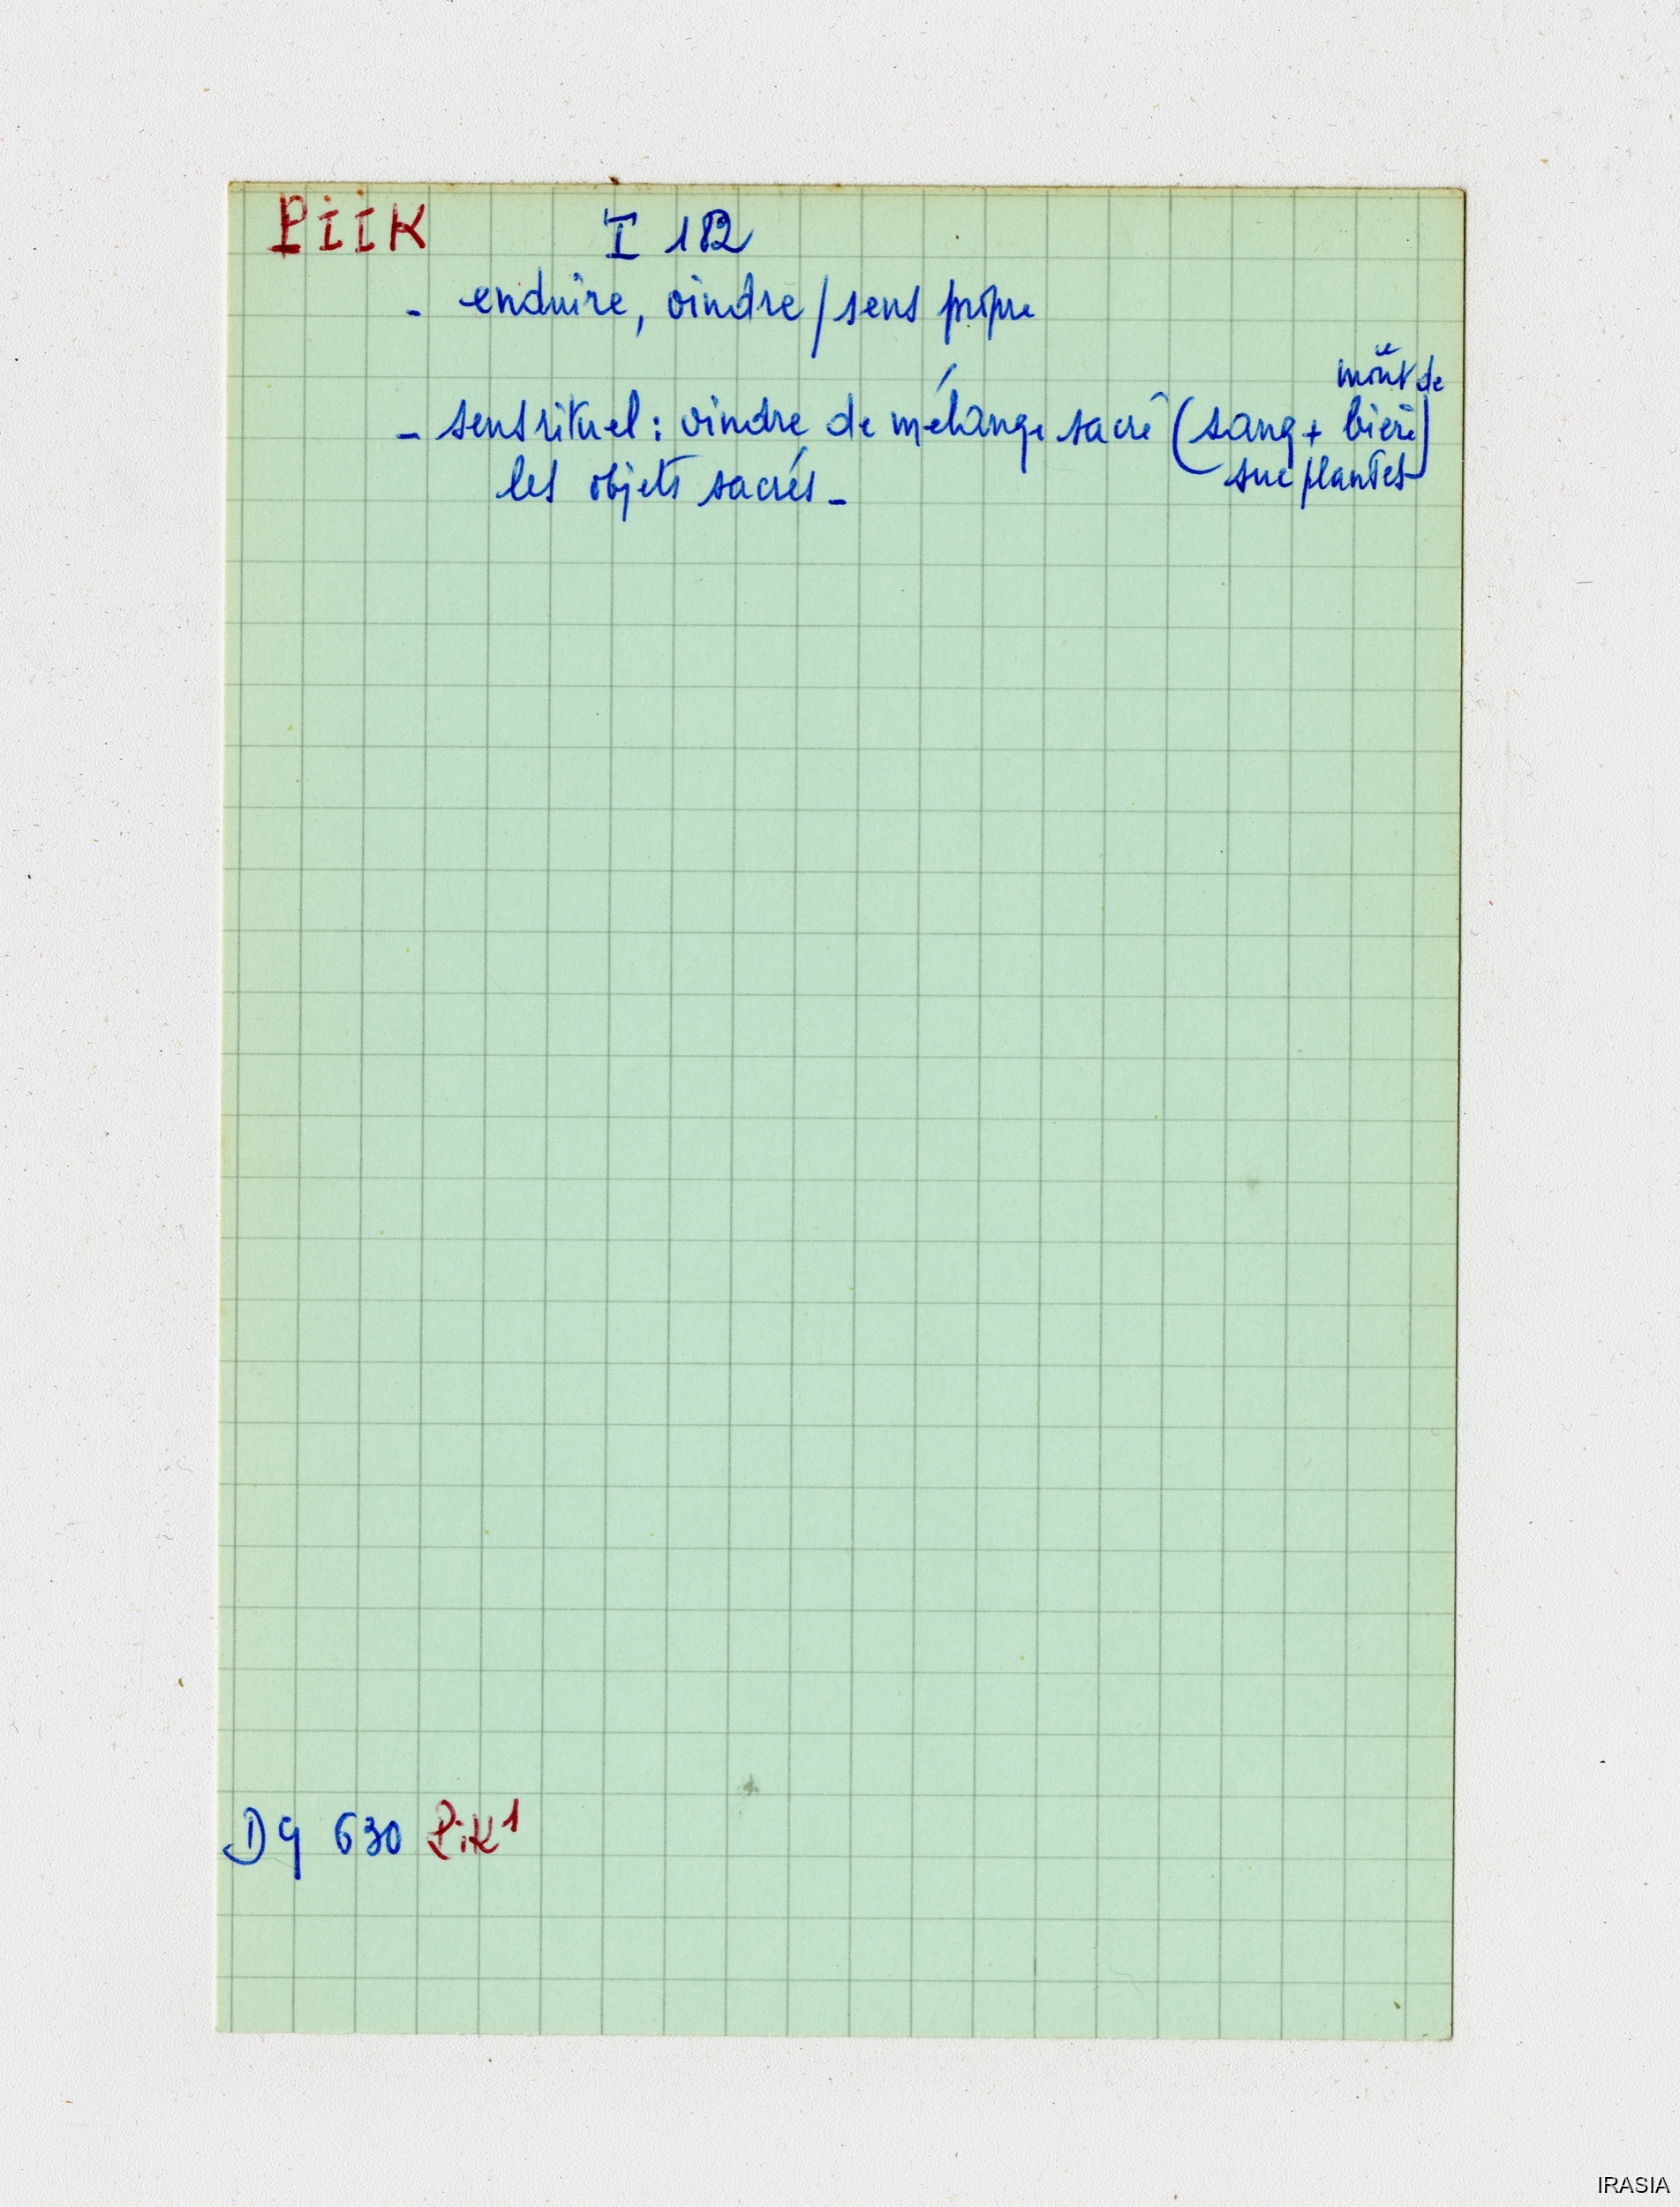 PiiK I 182
- enduire, oindre / sens propre
moût de
- sens rituel : oindre de mélange sacré (sang + bière)
suc plantes
les objets sacrés -
D9 630 PiK1
IRASIA